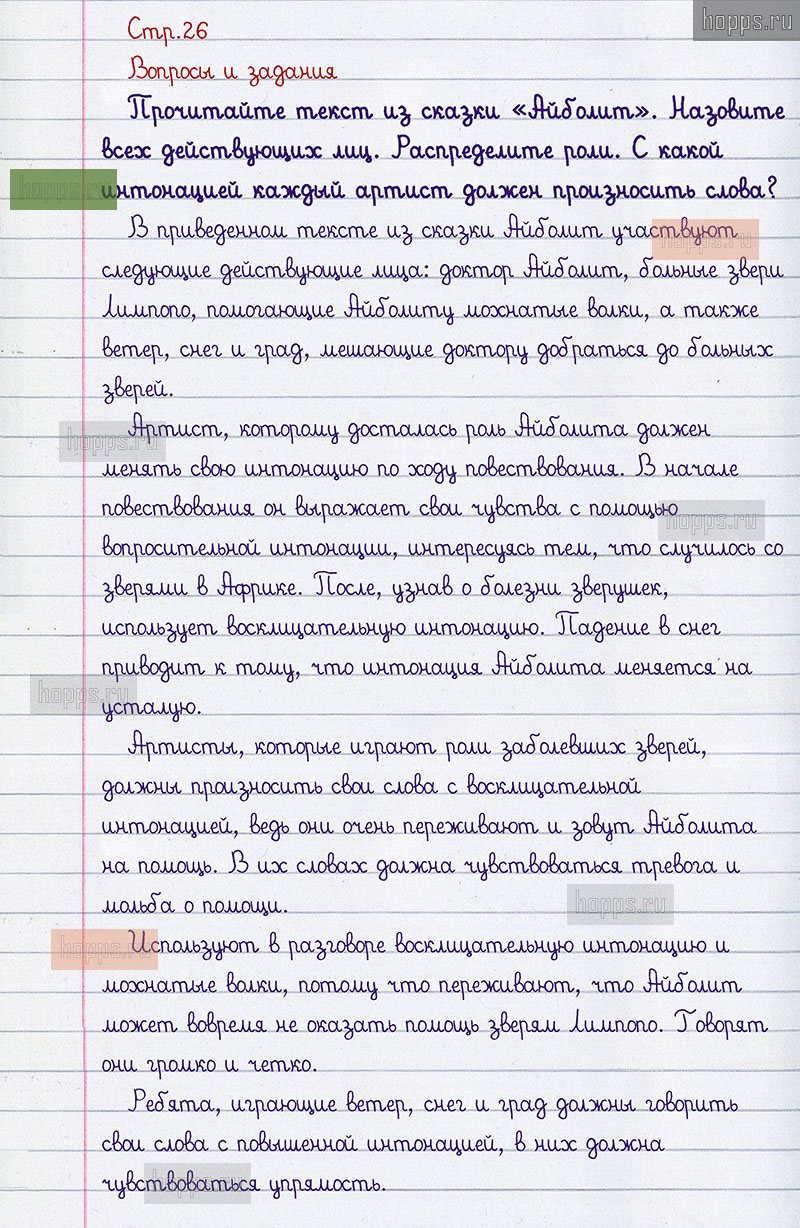 hopps.ru
Стр.26
Вопросы и задания
Прочитайте текст из сказки «Айболит». Назовите
всех действующих лиц. Распределите роли. С какой
hopps.ru
интонацией каждый артист должен произносить слова?
В приведенном тексте из сказки Айболит участвуют
hopps.ru
следующие действующие лица: доктор Айболит, больные звери
Лимпопо, помогающие Айболиту мохнатые волки, а также
ветер, снег и град, мешающие доктору добраться до больных
зверей.
Артист, которому досталась роль Айболита должен
hopps.ru
менять свою интонацию по ходу повествования. В начале
повествования он выражает свои чувства с помощью
hopps.ru
вопросительной интонации, интересуясь тем, что случилось со
зверями в Африке. После, узнав о болезни зверушек,
использует восклицательную интонацию. Падение в снег
приводит к тому, что интонация Айболита меняется на
hopps.ru
усталую.
Артисты, которые играют роли заболевших зверей,
должны произносить свои слова с восклицательной
интонацией, ведь они очень переживают и зовут Айболита
на помощь. В их словах должна чувствоваться тревога и
мольба о помощи.
hopps.ru
Используют в разговоре восклицательную интонацию и
hopps.ru
мохнатые волки, потому что переживают, что Айболит
может вовремя не оказать помощь зверям Лимпопо. Говорят
они громко и четко.
Ребята, играющие ветер, снег и град должны говорить
свои слова с повышенной интонацией, в них должна
чувствоваться упрямость.
hopps.ru